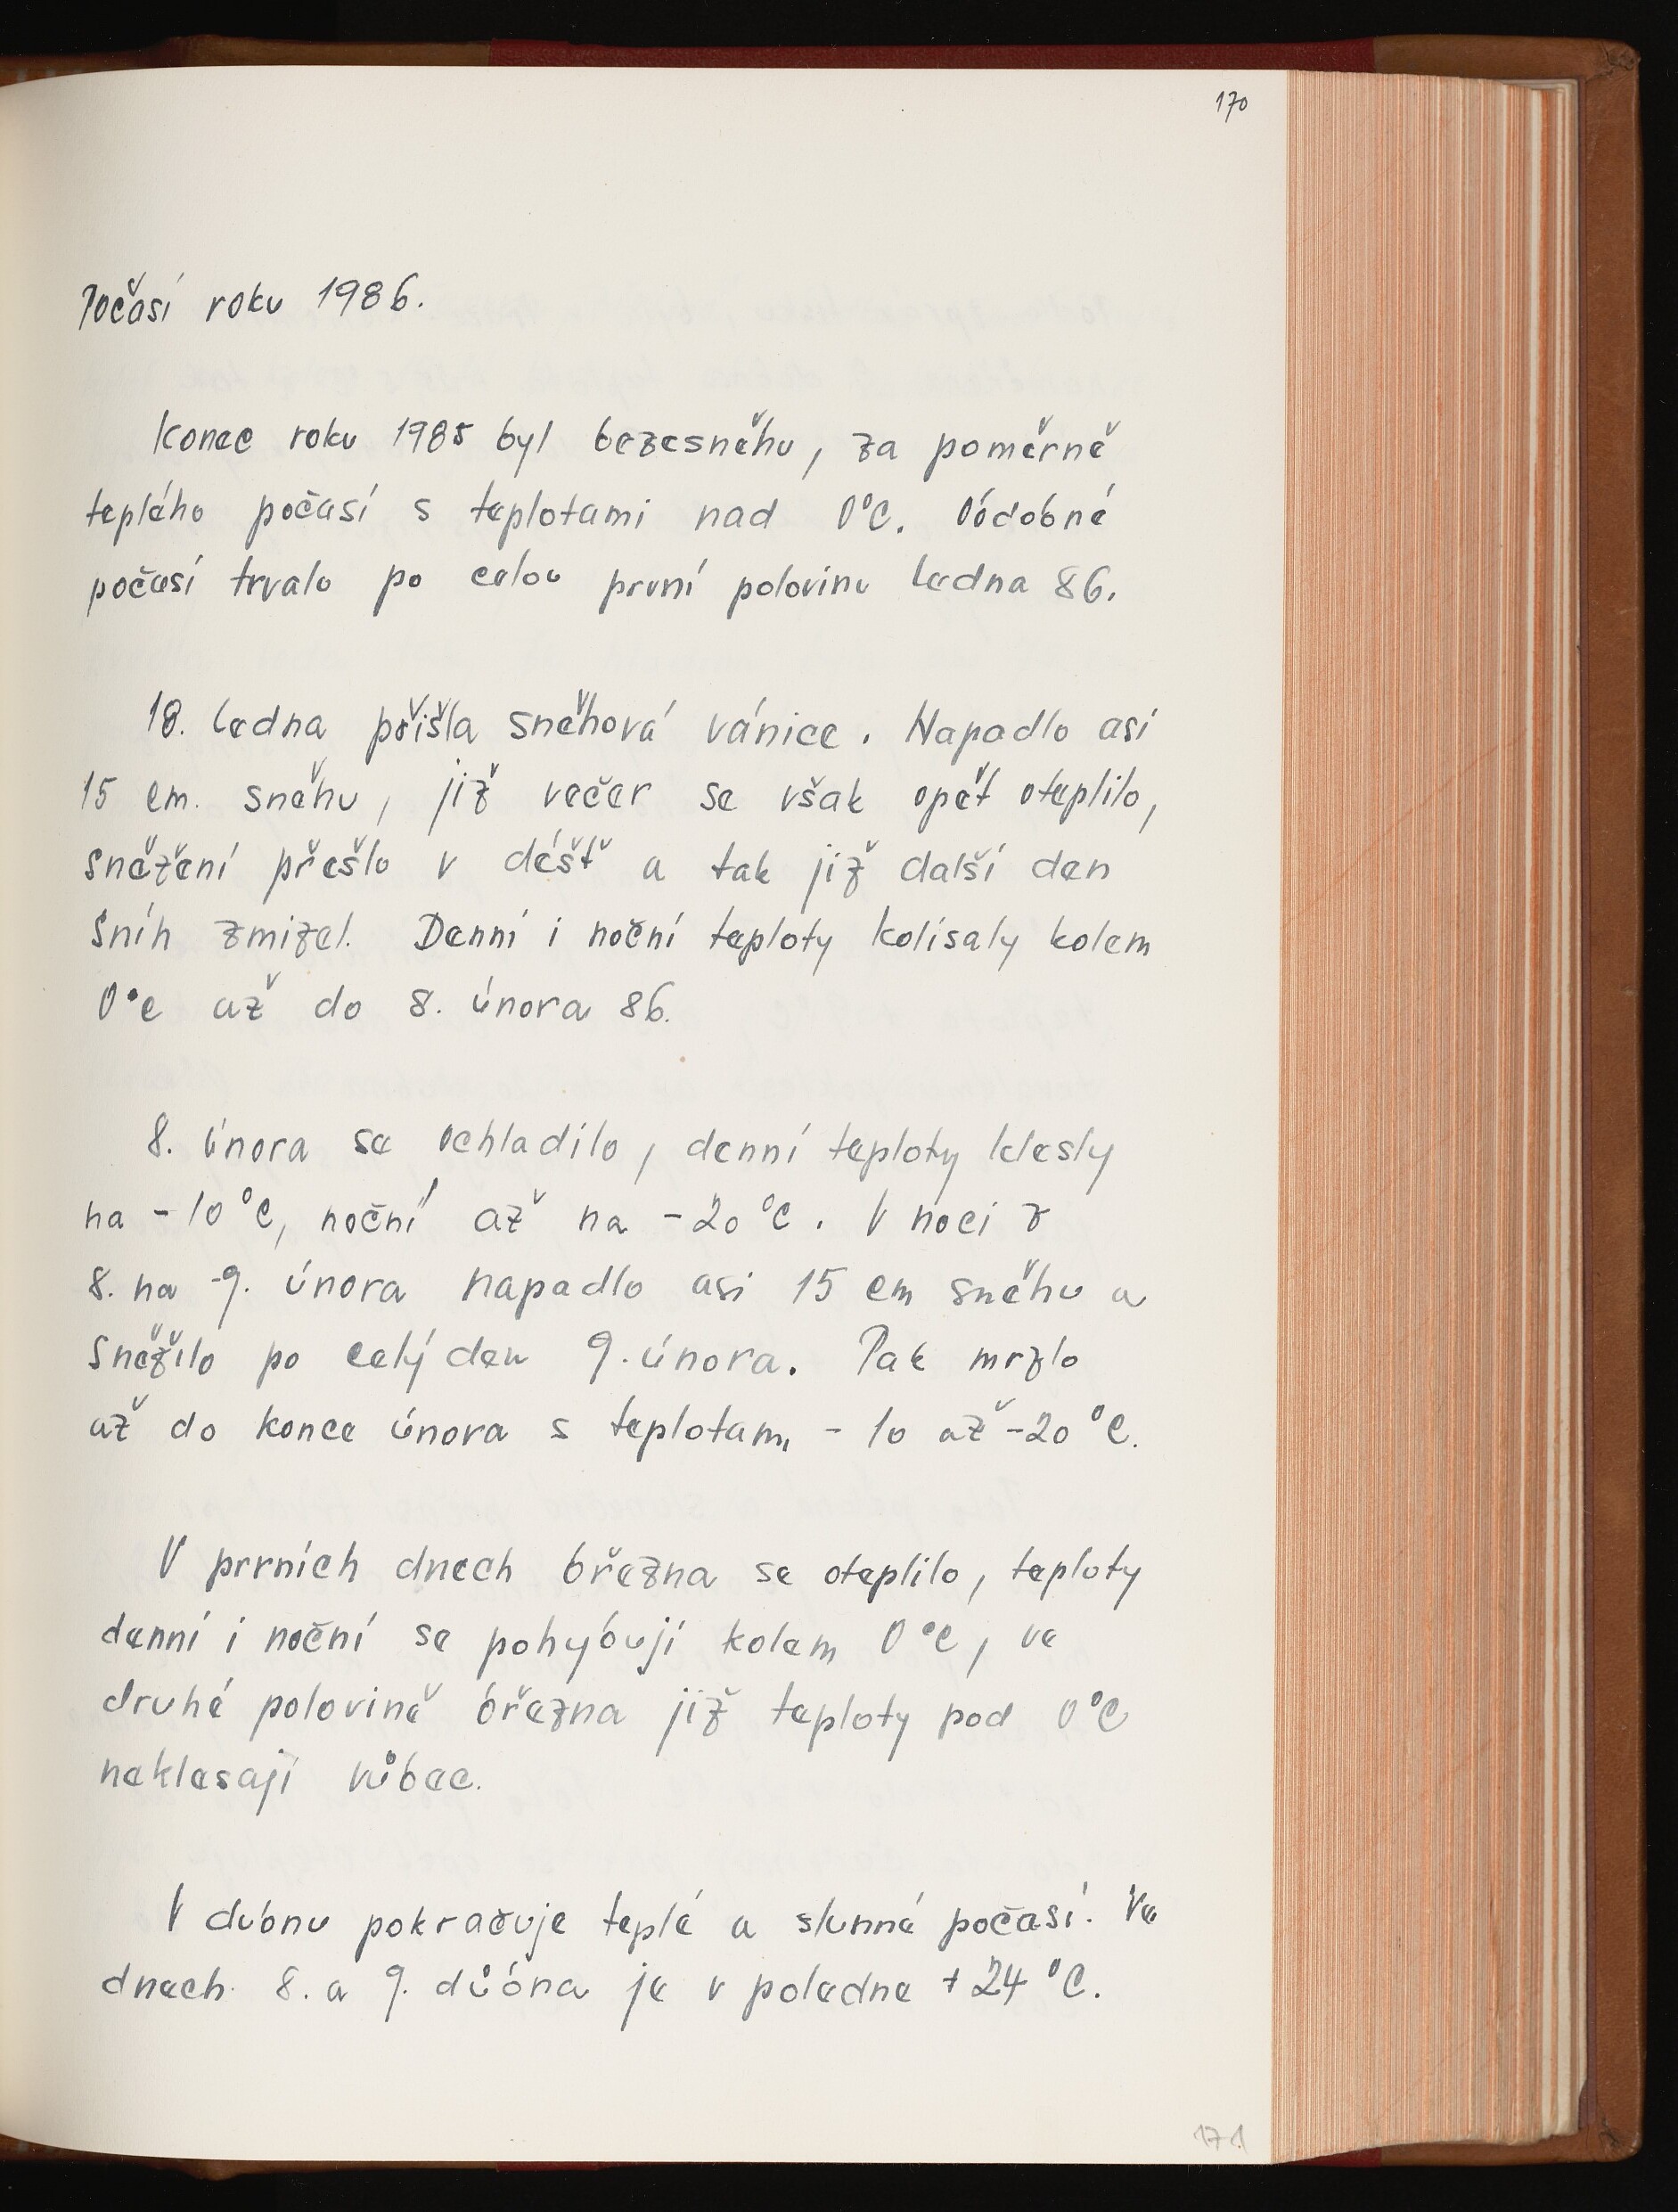 170
Počasí roku 1986.
Konec roku 1985 byl bezesněhu, za poměrně
teplého počasí s teplotami nad 0°C. Pódobné
počasí trvalo po celou první polovinu ledna 86.
18. ledna přišla sněhová vánice. Napadlo asi
15 cm. sněhu, již večer se však opět oteplilo,
sněžení přešlo v déšť a tak již další den
sníh zmizel. Denní i noční teploty kolísaly kolem
0°C až do 8. února 86.
8. února se ochladilo, denní teploty klesly
na -10°C, noční až na -20°C. V noci z
8. na 9. února napadlo asi 15 cm sněhu a
sněžilo po celý den 9. února. Pak mrzlo
až do konce února s teplotami -10 až -20°C.
V prvních dnech března se oteplilo, teploty
denní i noční se pohybují kolem 0°C, ve
druhé polovině března již teploty pod 0°C
neklesají vůbec.
V dubnu pokračuje teplé a slunné počasí. Ve
dnech 8. a 9. důbna je v poledne +24°C.
171